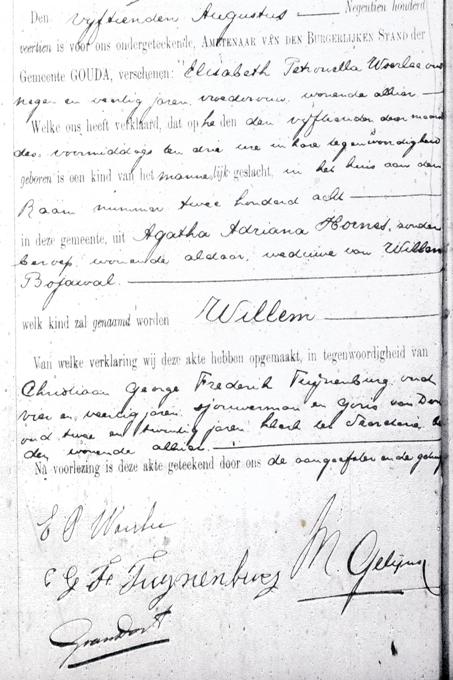 Den vyftienden Augustus — Negentien honderd
veertien is voor ons ondergeteekende, AMBTENAAR VAN DEN BURGERLIJKEN STAND der
Gemeente GOUDA, verschenen: Elisabeth Petronella Woerlee oud
negen en veertig jaren, vroedvrouw, wonende alhier —
Welke ons heeft verklaard, dat op heden den vyftienden dezer maand
des voormiddags ten drie ure in hare tegenwoordigheid
geboren is een kind van het mannelijk geslacht, in het huis aan den
Raam nummer twee honderd acht —
in deze gemeente, uit Agatha Adriana Hornes, zonder
beroep, wonende aldaar, weduwe van Willem
Bojawal. —
welk kind zal genaamd worden Willem —
Van welke verklaring wij deze akte hebben opgemaakt, in tegenwoordigheid van
Christiaan George Frederik Tuynenburg, oud
vier en veertig jaren, sjouwerman en Goris van Dort
oud twee en twintig jaren, klerk ter Secretarie,
den wonende alhier. —
Na voorlezing is deze akte geteekend door ons de aangeefster en de
E P Woerlee
C G F Tuynenburg
G van Dort